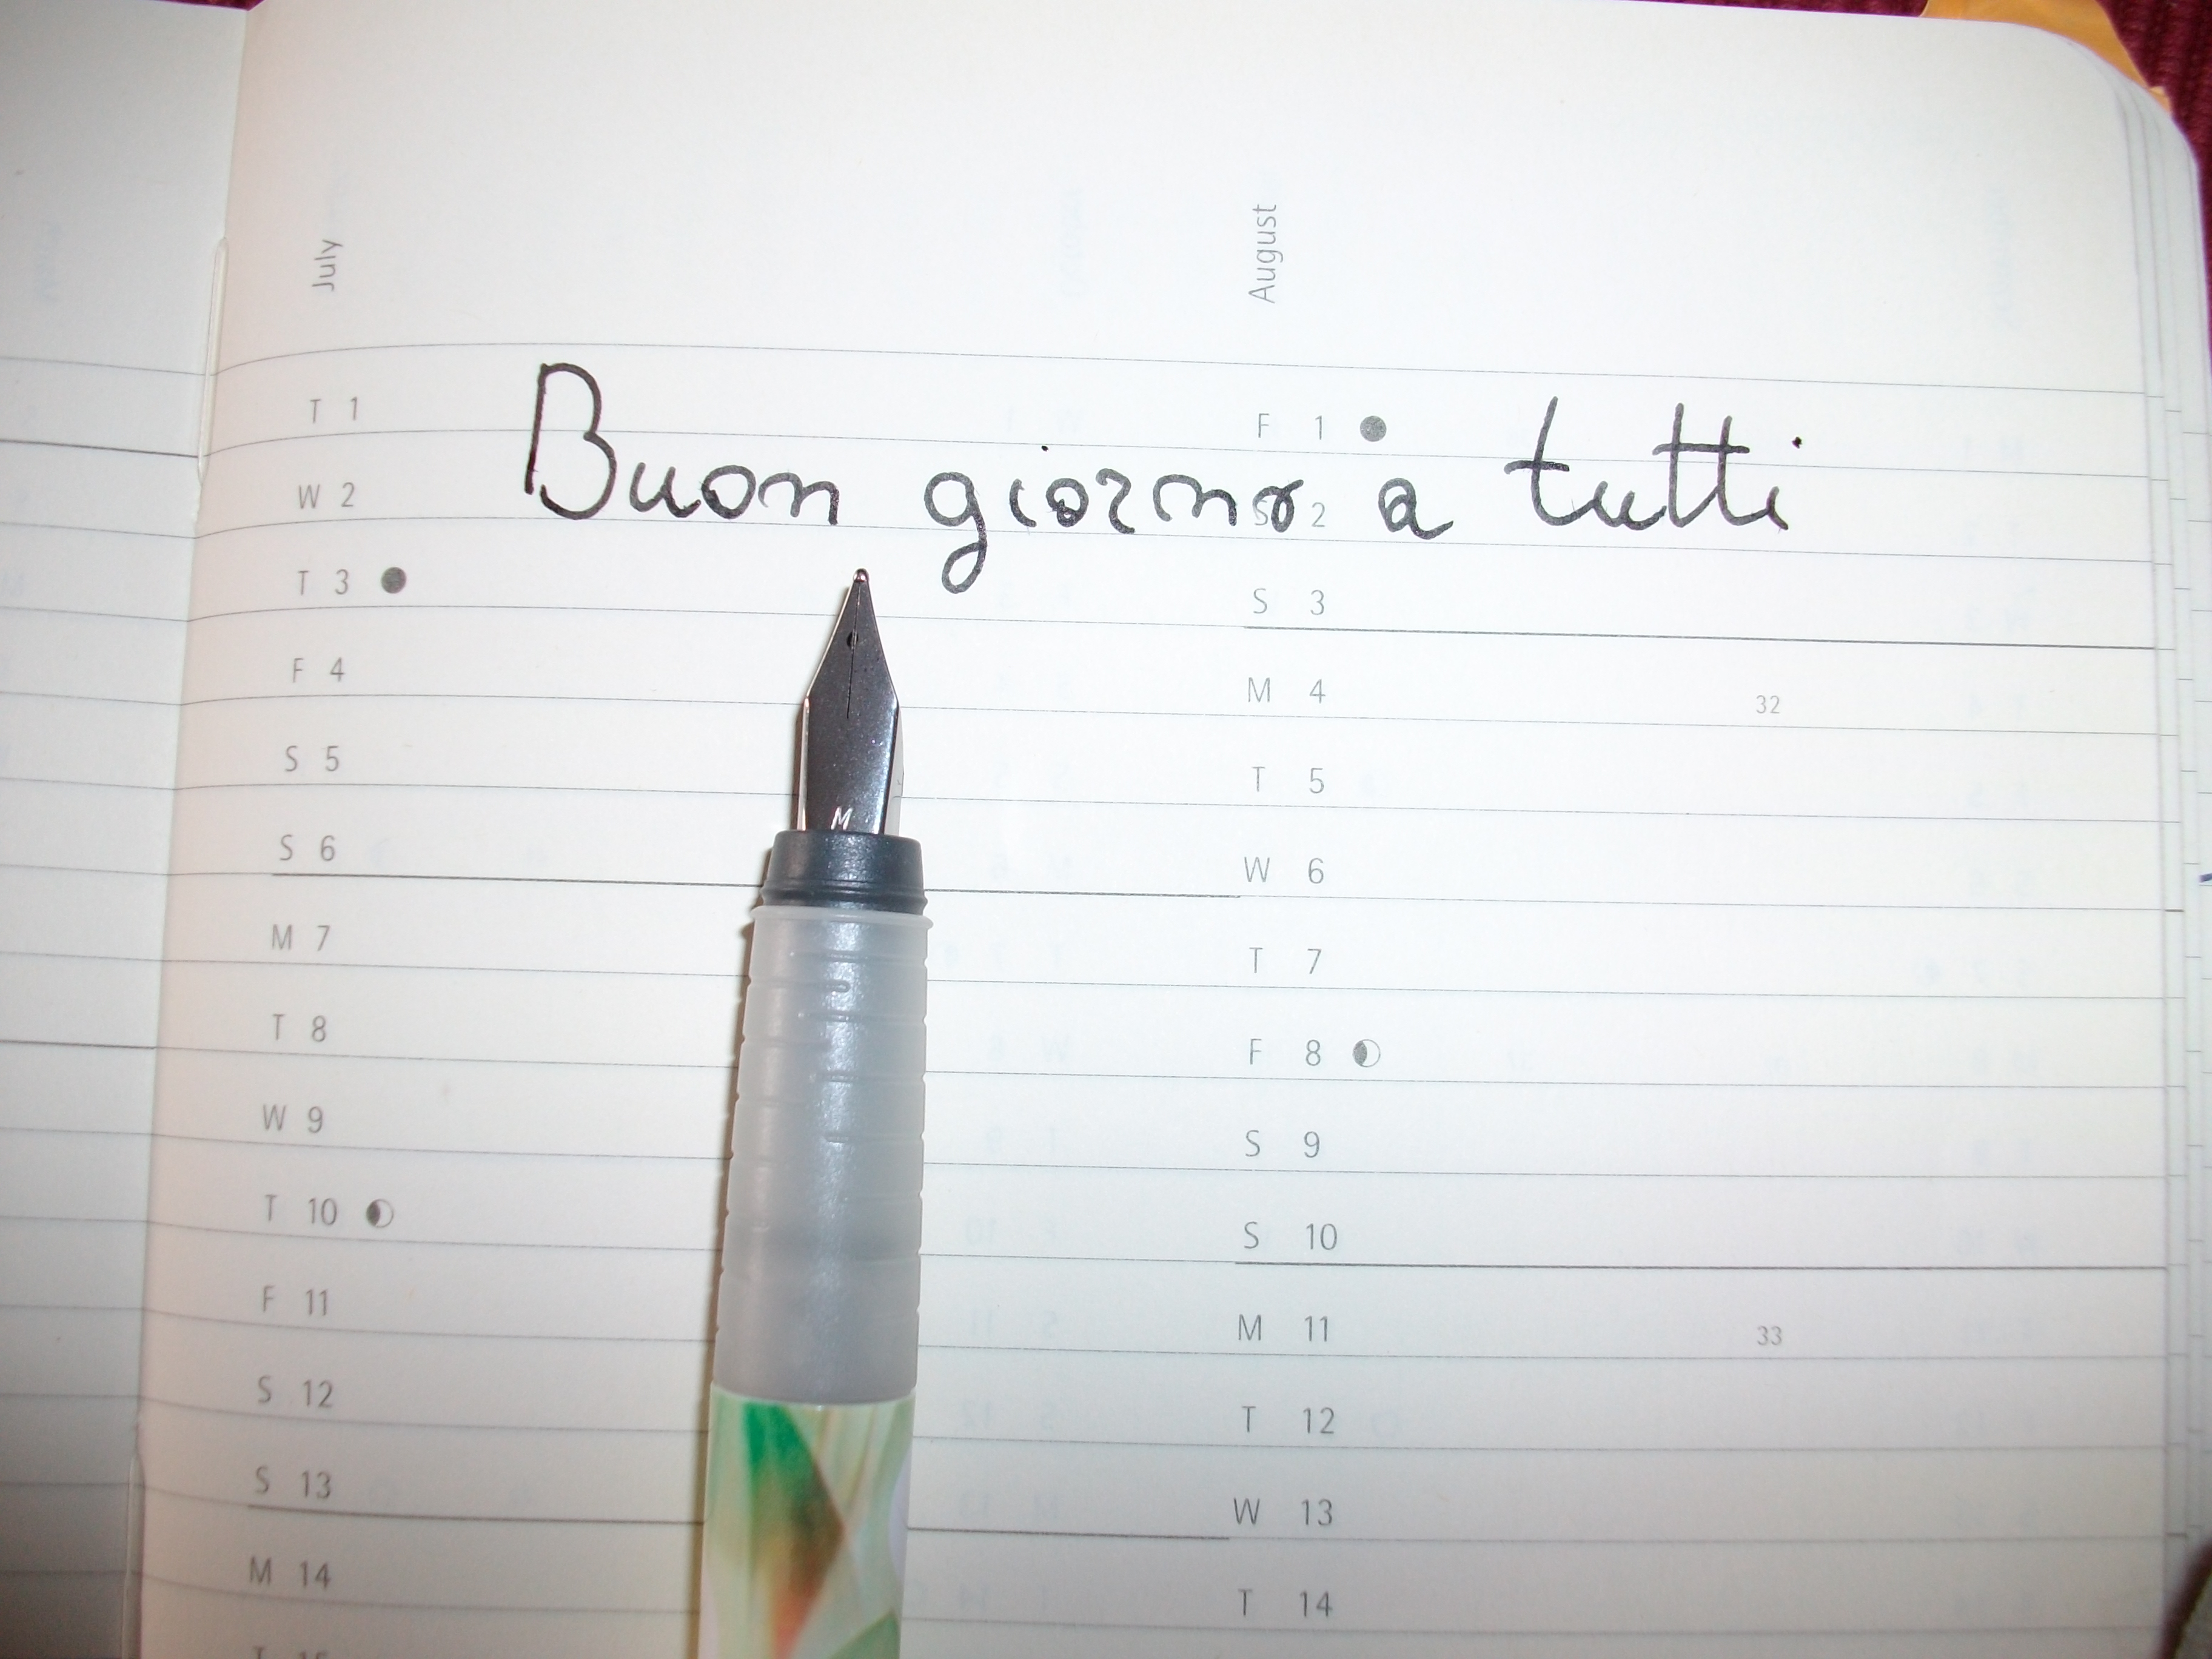 July August
Buon giorno a tutti
T 1 F 1
W 2 S 2
T 3 S 3
F 4 M 4 32
S 5 T 5
S 6 W 6
M 7 T 7
T 8 F 8
W 9 S 9
T 10 S 10
F 11 M 11 33
S 12 T 12
S 13 W 13
M 14 T 14
M